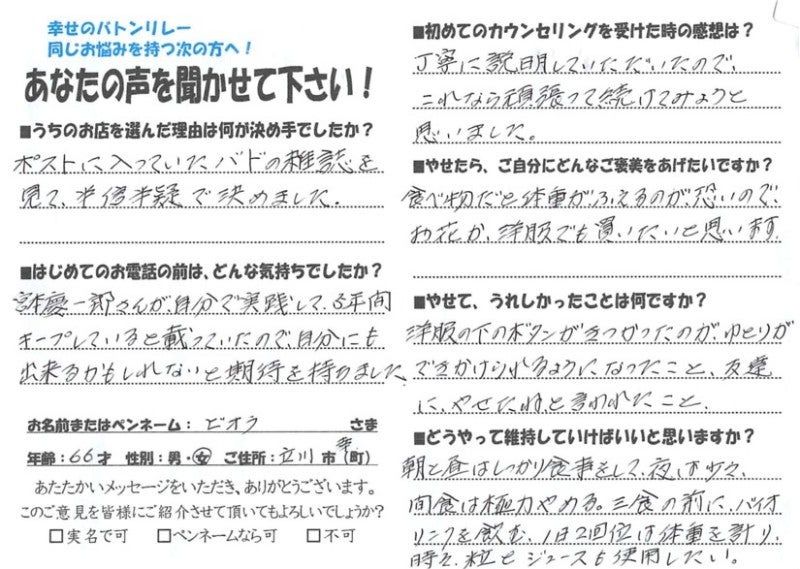 幸せのバトンリレー
同じお悩みを持つ次の方へ!
あなたの声を聞かせて下さい!
■うちのお店を選んだ理由は何が決め手でしたか?
ポストに入っていたバドの雑誌を
見て、半信半疑で決めました。
■はじめてのお電話の前は、どんな気持ちでしたか?
許慶一郎さんが、自分で実践して、5年間
キープしていると載っていたので、自分にも
出来るかもしれないと期待を持ちました
お名前またはペンネーム:ビオラ さま
年齢:66才 性別:男・女 ご住所:立川市 幸(町)
あたたかいメッセージをいただき、ありがとうございます。
このご意見を皆様にご紹介させて頂いてもよろしいでしょうか?
□実名で可 □ペンネームなら可 □不可
■初めてのカウンセリングを受けた時の感想は?
丁寧に説明していただいたので、
これなら頑張って続けてみようと
思いました。
■やせたら、ご自分にどんなご褒美をあげたいですか?
食べ物だと体重がふえるのが、恐いので、
お花か、洋服でも買いたいと思います
■やせて、うれしかったことは何ですか?
洋服の下のボタンがきつかったのが、ゆとりが
できかけられるようになったこと、友達
に、やせたねと言われたこと、
■どうやって維持していけばいいと思いますか?
朝と昼はしっかり食事をして、夜は少々、
間食は極力やめる。三食の前に、バイオ
リンクを飲む、1日2回位は体重を計り、
時々、粒とジュースも使用したい。